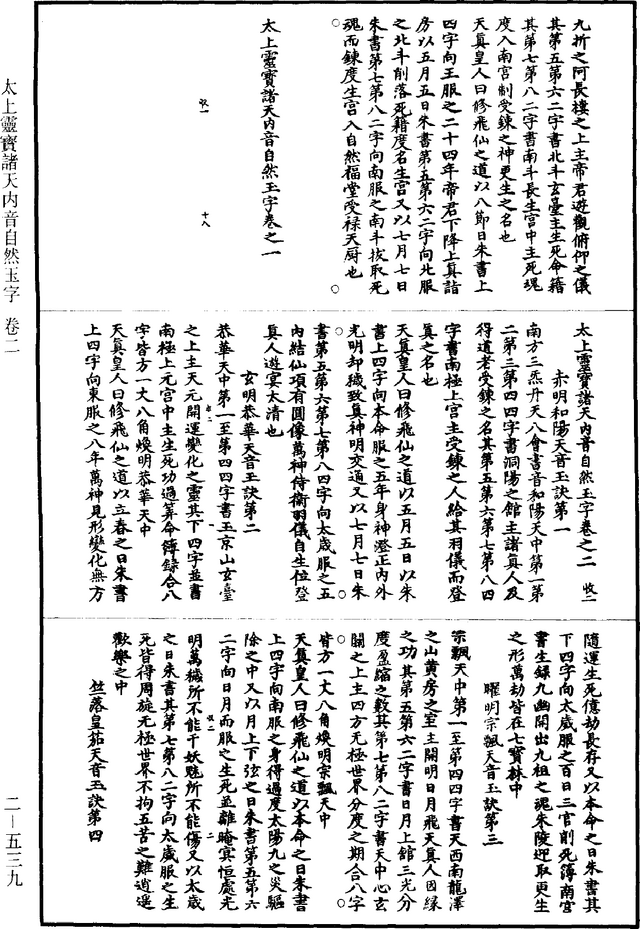 太上靈寶諸天內音自然玉字 卷二
二—五三九
九折之阿長樓之上主帝君遊觀俯仰之儀
其第五第六二字書北斗玄臺主生死命籍
其第七第八二字書南斗長生宮中主死魂
度入南宮制受鍊之神更生之名也
天真皇人曰修飛仙之道以八節日朱書上
四字向王服之二十四年帝君下降上真詣
房以五月五日朱書第五第六二字向北服
之北斗削落死籍度名生宮又以七月七日
朱書第七第八二字向南服之南斗拔取死
魂而鍊度生宮入自然福堂受祿天厨也
太上靈寶諸天內音自然玉字卷之一
收一 十八
太上靈寶諸天內音自然玉字卷之二 收二
赤明和陽天音玉訣第一
南方三炁丹天八會書音和陽天中第一第
二第三第四四字書洞陽之館主諸真人及
得道者受鍊之名其第五第六第七第八四
字書南極上宮主受鍊之人給其羽儀而登
真之名也
天真皇人曰修飛仙之道以五月五日以朱
書上四字向本命服之五年身神澄正內外
光明却穢致真神明交通又以七月七日朱
書第五第六第七第八四字向太歲服之五
內結仙項有圓像萬神侍衛羽儀自生位登
真人遊宴太清也
玄明恭華天音玉訣第二
恭華天中第一至第四四字書玉京山玄臺
之上主天元開運變化之靈其下四字並書
南極上元宮中主生死功過筭命簿録合八
字皆方一丈八角煥明恭華天中
天真皇人曰修飛仙之道以立春之日朱書
上四字向東服之八年萬神見形變化無方
隨運生死億劫長存又以本命之日朱書其
下四字向太歲服之百日三官削死簿南宮
書生録九幽開出九祖之魂朱陵迎取更生
之形萬劫皆在七寶林中
曜明宗飄天音玉訣第三
宗飄天中第一至第四四字書天西南龍澤
之山黄房之室主開明日月飛天真人因緣
之功其第五第六二字書日月上館三光分
度盈縮之數其第七第八二字書天中心玄
關之上主四方無極世界分度之期合八字
皆方一丈八角煥明宗飄天中
天真皇人曰修飛仙之道以本命之日朱書
上四字向南服之身得過度太陽九之災驅
除之中又以月上下弦之日朱書第五第六
二字向日月而服之生死並離晻冥恒處光
明萬穢所不能干妖魅所不能傷又以太歲
之日朱書其第七第八二字向太歲服之生
死皆得周旋無極世界不拘五苦之難逍遥
歡樂之中
竺落皇茄天音玉訣第四